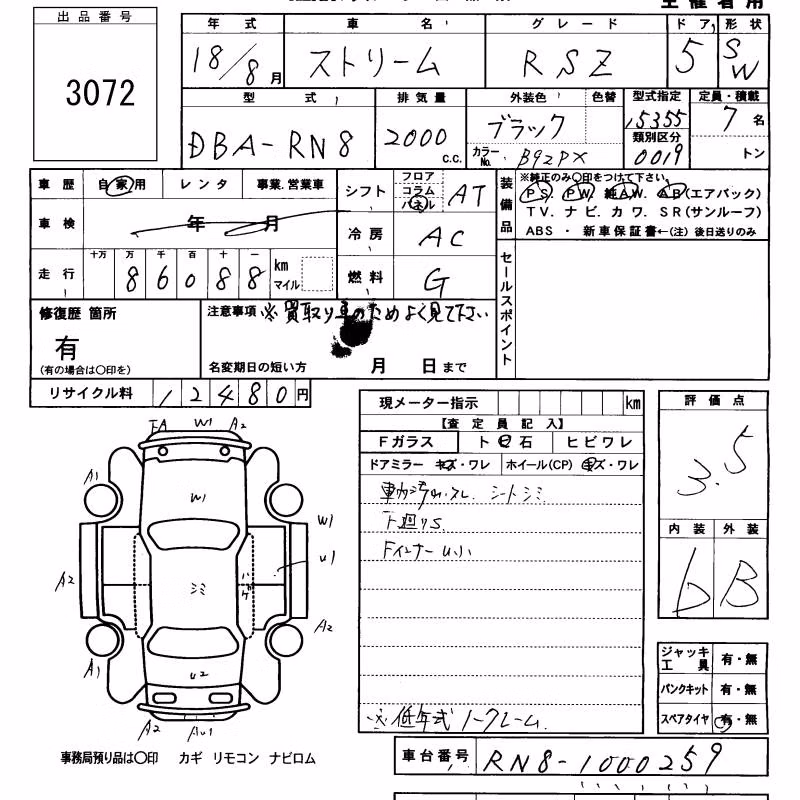 主催者用
出品番号
3072
年式 車名 グレード ドア 形状
18/8月 ストリーム RSZ 5 SW
型式 排気量 外装色 色替 型式指定 定員・積載
DBA-RN8 2000 c.c. ブラック 15355 7名
類別区分
カラーNo. B92PX 0019 トン
車歴 自家用 レンタ 事業.営業車 シフト フロア コラム パネル AT
車検 年 月 冷房 AC
走行 十万 万 千 百 十 一
86088 km マイル 燃料 G
装備品 ※純正のみ○印をつけて下さい。
PS. PW. 純AW. AB(エアバック)
TV. ナビ. カワ. SR(サンルーフ)
ABS ・ 新車保証書←(注) 後日送りのみ
セールスポイント
修復歴 箇所
有
(有の場合は○印を)
注意事項 ※買取り車のためよく見て下さい
名変期日の短い方 月 日まで
リサイクル料 12480円
現メーター指示 km
【査定員記入】
Fガラス ト ヒ 石 ヒビワレ
ドアミラー キズ・ワレ ホイール(CP) キズ・ワレ
シートシミ
下廻りS
Fインナー U小
※低年式ノークレーム
評価点
3.5
内装 外装
b B
ジャッキ工具 有・無
パンクキット 有・無
スペアタイヤ 有・無
W1 A2
A1
W1
W1
U1
A2 シミ ハゲ
A2
A1
U2
A2
事務局預り品は○印 カギ リモコン ナビロム
車台番号 RN8-1000259